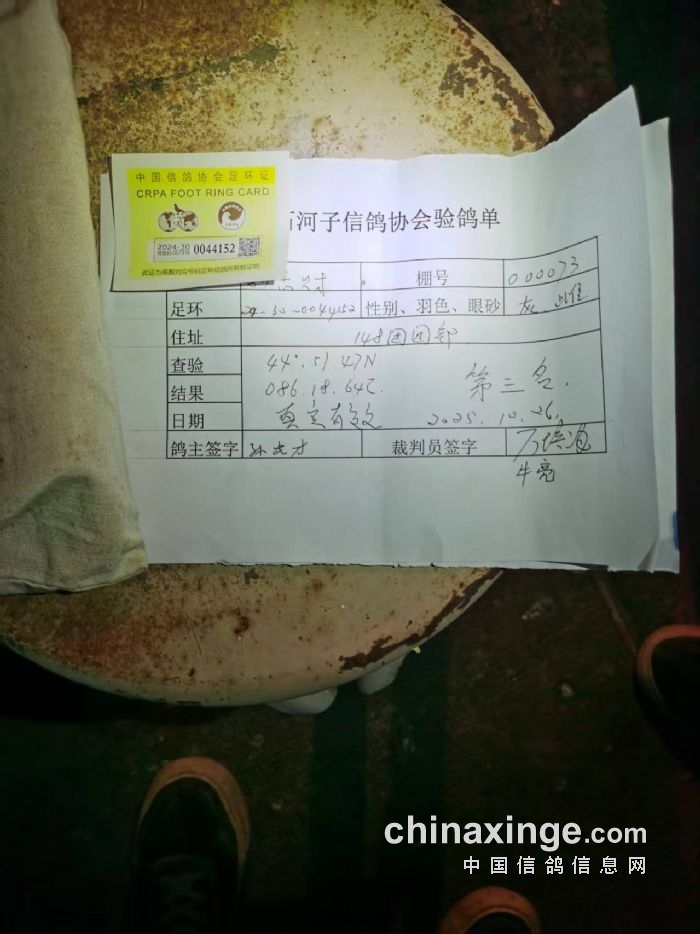 中国信鸽协会足环证
CRPA FOOT RING CARD
2024-30
0044152
此证为佩戴对应号码足环信鸽所有权证明
石河子信鸽协会验鸽单
棚号 000073
足环 24-30-0044152 性别、羽色、眼砂 灰
住址 148团团部
查验 44°.51.47N
结果 086.18.64E. 第三名.
日期 真实有效 2025.10.26.
鸽主签字 孙 才 裁判员签字
牛亮
chinaxinge.com
中国信鸽信息网